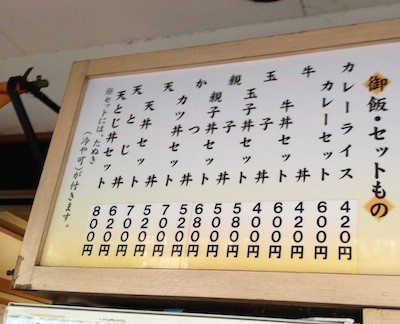 御飯・セットもの
カレーライス 420円
カレーセット 600円
牛丼 420円
牛丼セット 600円
玉子丼 400円
玉子丼セット 580円
親子丼 500円
親子丼セット 680円
かつ丼 520円
カツ丼セット 700円
天丼 520円
天丼セット 700円
天とじ丼 620円
天とじ丼セット 800円
※セットには、たぬき
(冷や可)が付きます。